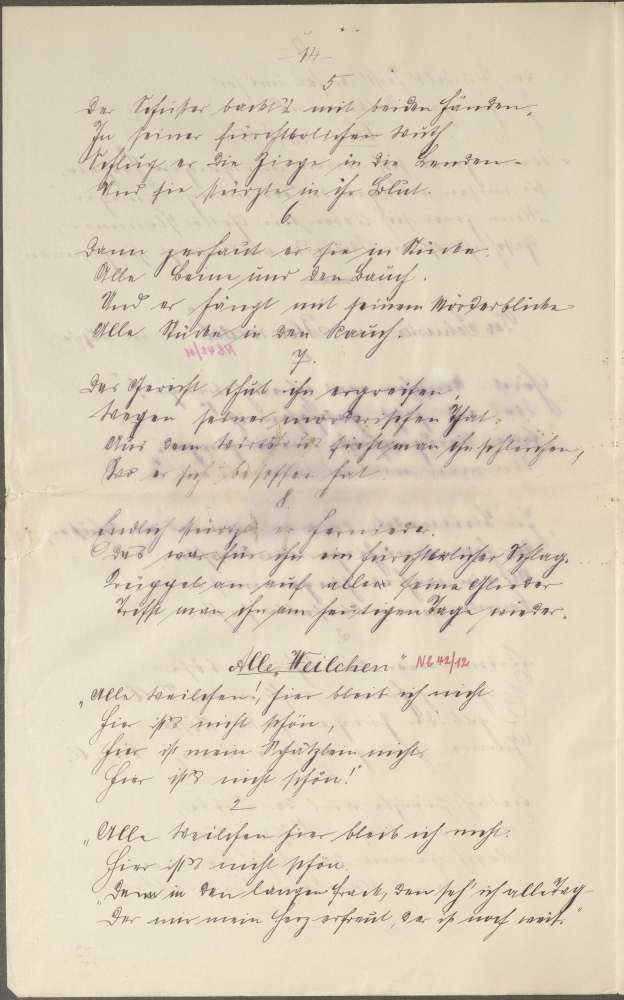 14
5
Der Schuster packt's mit beiden Händen,
In seiner fürchterlichen Wuth
Schlug er die Ziege in die Lenden.
Und sie stürzte in ihr Blut.
6.
Dann zerhaut er sie in Stücke.
Alle Beine und den Bauch.
Und er hängt mit seinem Mörderblicke
Alle Stücke in den Rauch.
N642/11
7.
Das Gericht thut ihn ergreifen,
Wegen seiner mörderischen That.
Aus dem Wirtshaus sieht man ihn schleichen,
Wo er sich besoffen hat.
8.
Endlich stürzt er hernieder.
Das war für ihn ein fürchterlicher Schlag.
Krüppel an auf alle seine Glieder
Trifft man ihn am heutigen Tage wieder.
Alle Weilchen" N642/12
„Alle Weilchen!, hier bleib ich nicht
Hier ist's nicht schön,
Hier ist mein Schätzlein nicht.
Hier ist's nicht schön!"
2
„Alle Weilchen hier bleib ich nicht.
Hier ist's nicht schön.
Denn in den langen Frack, den seh' ich alle Tag
Der mir mein Herz erfreut, der ist noch weit."